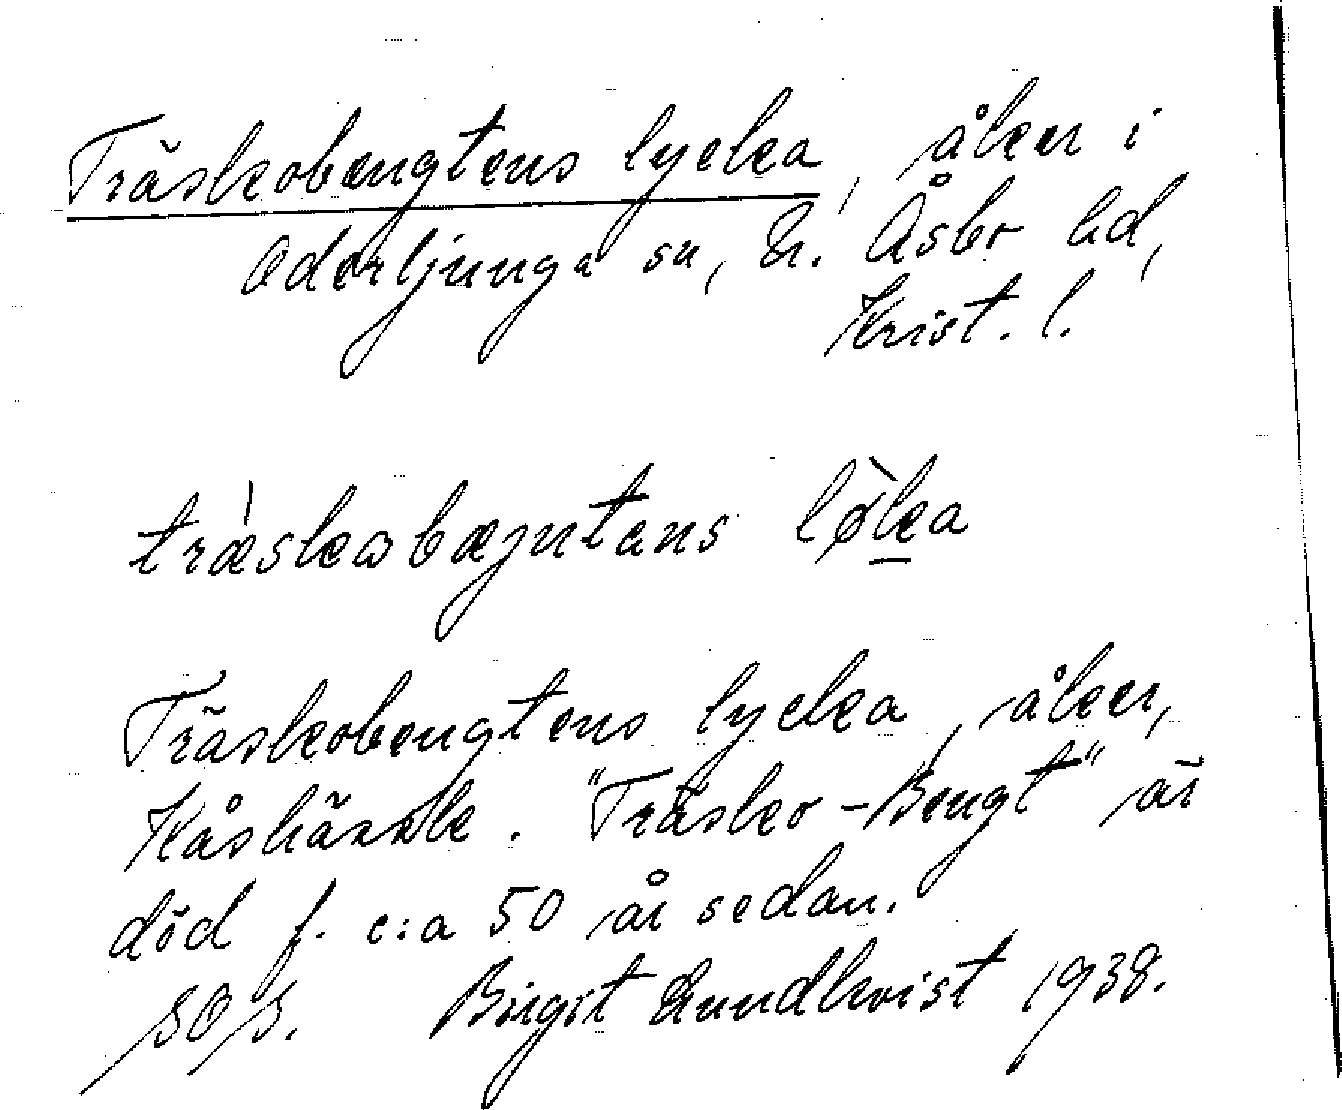 Träskobengtens lycka, åker i
Oderljunga sn, N. Åsbo hd,
Krist. l.
trǽskobæŋntans lø̀ka
Träskobengtens lycka, åker,
Kåshärkle. "Träsko-Bengt" är
död f. c:a 50 år sedan.
SOS. Birgit Lundkvist 1938.